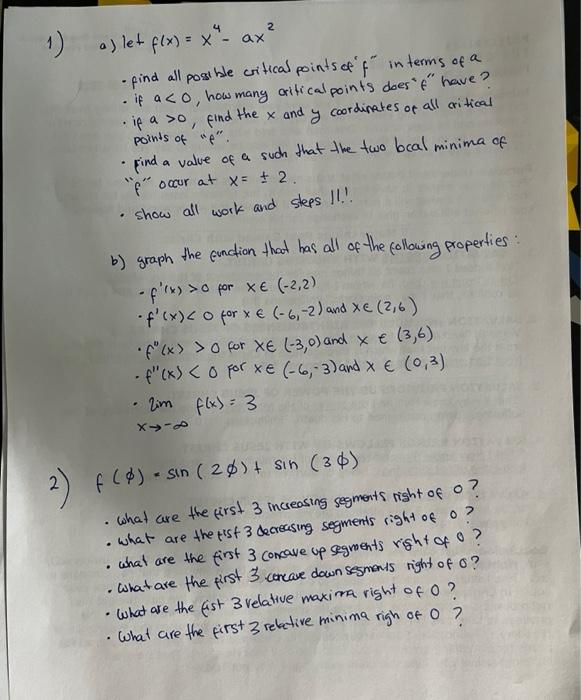 1) a) let f(x) = x⁴ - ax²
· find all possible critical points of "f" in terms of a
· if a<0, how many critical points does "f" have?
· if a >0, find the x and y coordinates of all critical
points of "f".
· Find a value of a such that the two local minima of
"f" occur at x= ± 2.
· show all work and steps !!!
b) graph the function that has all of the following properties:
· f'(x) >0 for x∈ (-2,2)
· f'(x)< 0 for x ∈ (-6,-2) and x∈ (2,6)
· f"(x) >0 for x∈ (-3,0) and x ∈ (3,6)
· f"(x) < 0 for x∈ (-6,-3) and x ∈ (0,3)
· lim f(x) = 3
x→-∞
2) f(ϕ) = sin (2ϕ)+ sin (3ϕ)
· what are the first 3 increasing segments right of 0?
· what are the fisf 3 decreasing segments right of 0?
· what are the first 3 concave up segments right of 0?
· what are the first 3 concave down segments right of 0?
· what are the fist 3 relative maxima right of 0?
· what are the first 3 relative minima righ of 0?